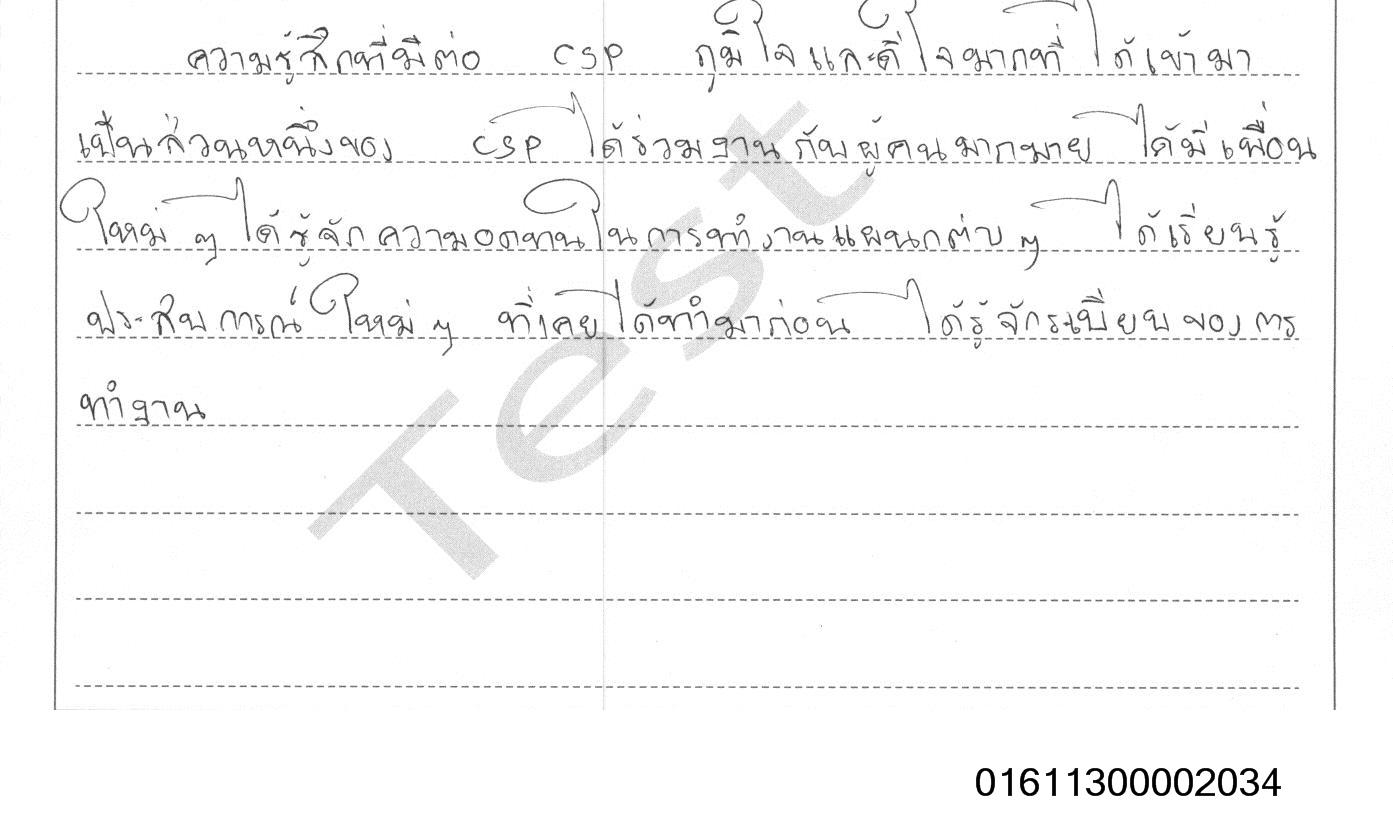 ความรู้สึกที่มีต่อ CSP ภูมิใจและดีใจมากที่ได้เข้ามา
เป็นส่วนหนึ่งของ CSP ได้ร่วมงานกับผู้คนมากมาย ได้มีเพื่อน
ใหม่ ๆ ได้รู้จักความอดทนในการทำงานแผนกต่าง ๆ ได้เรียนรู้
ประสบการณ์ใหม่ ๆ ที่เคยได้ทำมาก่อน ได้รู้จักระเบียบของการ
ทำงาน
Test
01611300002034